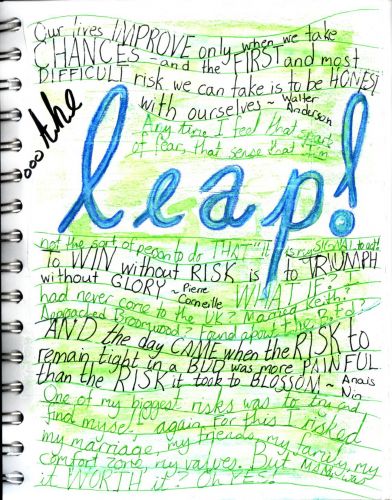 Our lives IMPROVE only when we take
CHANCES - and the FIRST and most
DIFFICULT risk we can take is to be HONEST
with ourselves ~ Walter
Anderson
Any time I feel that spark
of fear, that sense that I'm
...the
leap!
not the sort of person to do THAT" it is my SIGNAL to act!
To WIN without RISK is to TRIUMPH
without GLORY ~ Pierre
Corneille
WHAT IF? I
had never come to the UK? Married Keith?
Approached Broomwood? Found about the
AND the day CAME when the RISK to
remain tight in a BUD was more PAINFUL
than the RISK it took to BLOSSOM ~ Anais
Nin
One of my biggest risks was to try and
find myself again. For this I risked
my marriage, my friends, my family, my
comfort zone, my values. But MAN, was
it WORTH it? Oh YES!